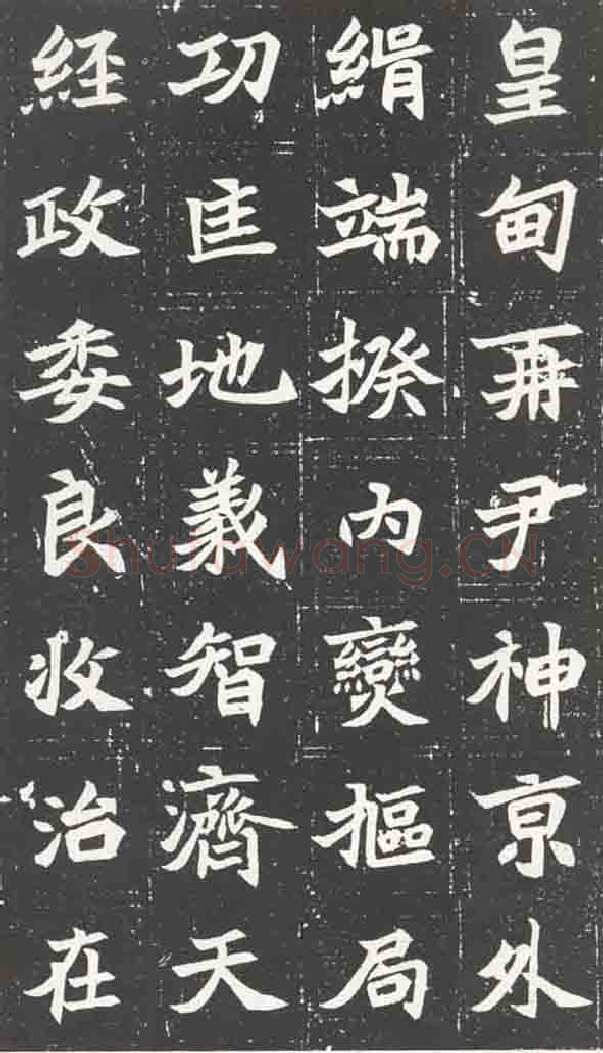 皇甸再尹神京外
緝端揆內爕樞局
功匡地義智濟天
經政委良收治在
shufawang.CN